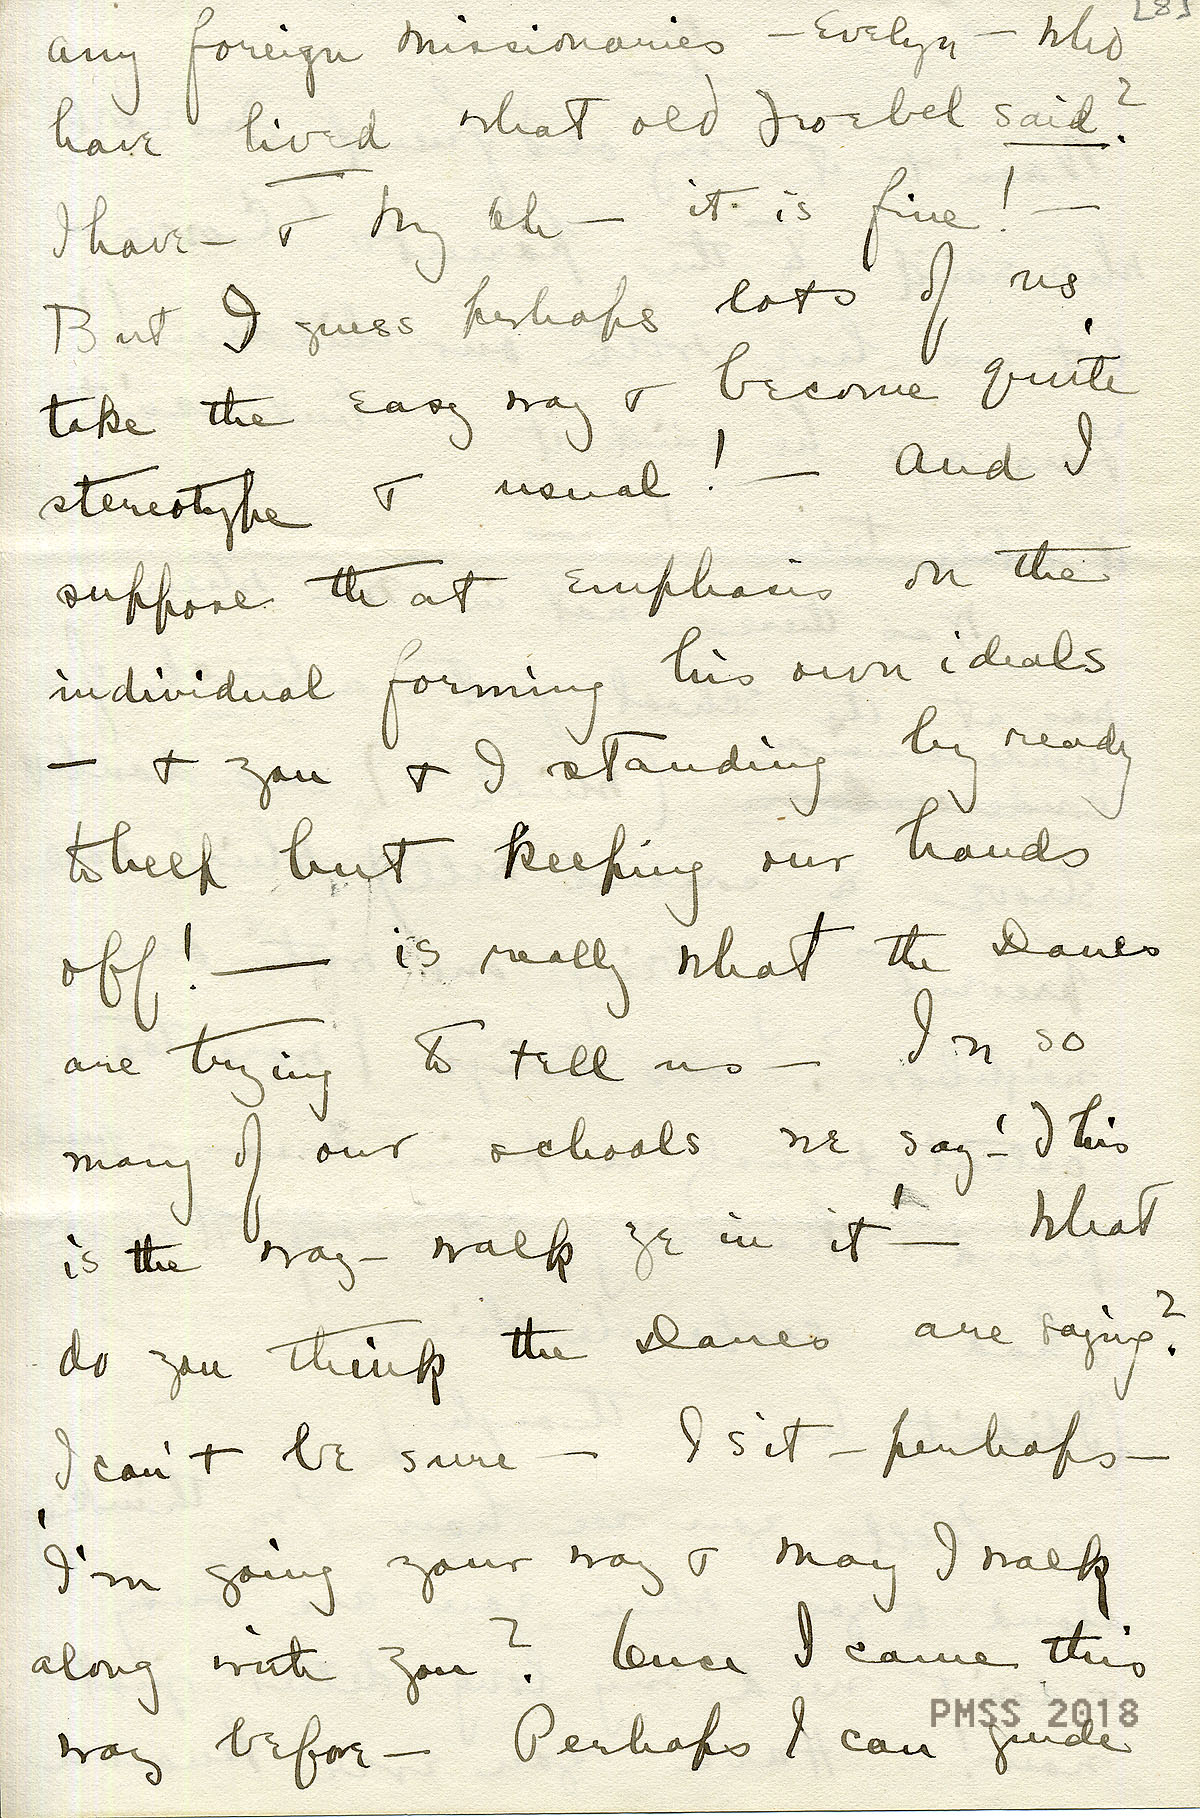 [8]
any foreign missionaries – Evelyn – who
have lived what old Froebel said?
I have – & my oh – it is fine! –
But I guess perhaps lots of us,
take the easy way & become quite
stereotype & usual! – And I
suppose that emphasis on the
individual forming his own ideals
– & you & I standing by ready
to help but keeping our hands
off! — is really what the Danes
are trying to tell us – In so
many of our schools we say – 'This
is the way – walk ye in it' – What
do you think the Danes are saying?
I can't be sure – Is it – perhaps –
'I'm going your way & may I walk
along with you? Once I came this
way before – Perhaps I can guide
PMSS 2018